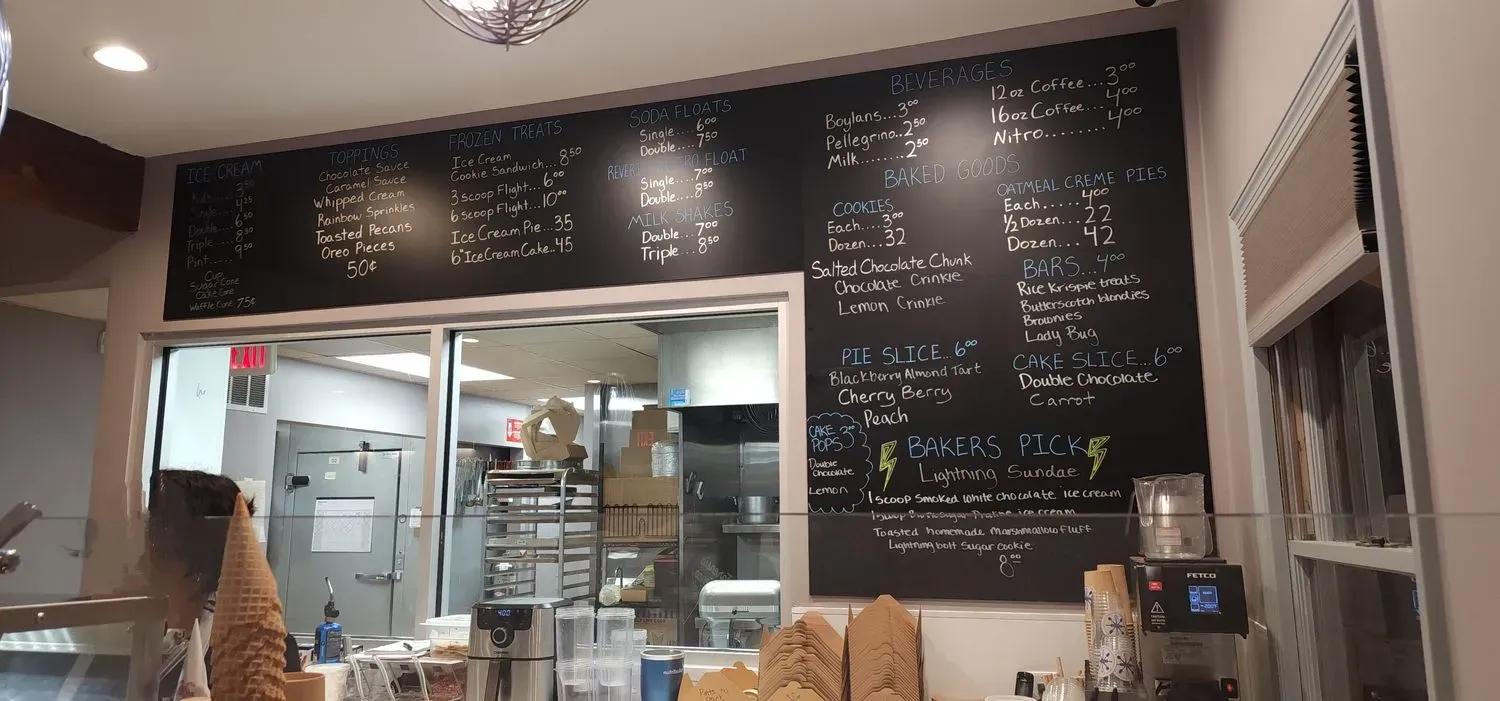 ICE CREAM
Kids... 3⁵⁰
Single... 4²⁵
Double... 6⁵⁰
Triple... 8⁵⁰
Pint..... 9⁵⁰
Cup
Sugar Cone
Cake Cone
Waffle Cone 75¢
TOPPINGS
Chocolate Sauce
Caramel Sauce
Whipped Cream
Rainbow Sprinkles
Toasted Pecans
Oreo Pieces
50¢
FROZEN TREATS
Ice Cream
Cookie Sandwich... 8⁵⁰
3 scoop Flight... 6⁰⁰
6 scoop Flight... 10⁰⁰
Ice Cream Pie... 35
6" Ice Cream Cake.. 45
SODA FLOATS
Single.... 6⁰⁰
Double.... 7⁵⁰
NITRO FLOAT
Single.... 7⁰⁰
Double... 8⁵⁰
MILK SHAKES
Double... 7⁰⁰
Triple... 8⁵⁰
BEVERAGES
Boylans... 3⁰⁰
Pellegrino.. 2⁵⁰
Milk........ 2⁵⁰
12oz Coffee... 3⁰⁰
16oz Coffee... 4⁰⁰
Nitro......... 4⁰⁰
BAKED GOODS
COOKIES
Each... 3⁰⁰
Dozen... 32
Salted Chocolate Chunk
Chocolate Crinkle
Lemon Crinkle
OATMEAL CREME PIES
Each..... 4⁰⁰
½ Dozen... 22
Dozen... 42
BARS... 4⁰⁰
Rice Krispie treats
Butterscotch blondies
Brownies
Lady Bug
PIE SLICE... 6⁰⁰
Blackberry Almond Tart
Cherry Berry
Peach
CAKE SLICE... 6⁰⁰
Double Chocolate
Carrot
CAKE 3⁰⁰
POPS
Double
Chocolate
Lemon
BAKERS PICK
Lightning Sundae
1 scoop Smoked white chocolate ice cream
1 scoop Brown Sugar Praline ice cream
Toasted homemade Marshmallow Fluff
Lightning bolt Sugar Cookie
8⁰⁰
EXIT
400
FETCO